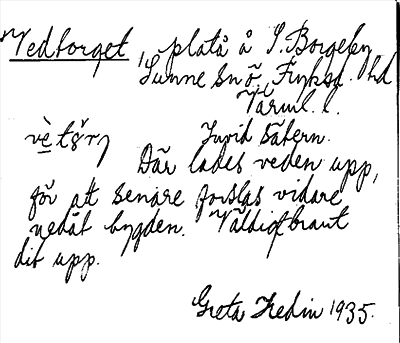 Vedtorget, platå å S. Borgeby
Sunne sn ö. Fryksd. hd
Värml. l.
Invid sätern.
Där lades veden upp,
för att senare forslas vidare
nedåt bygden. Väldigt brant
dit upp.
Greta Hedin 1935.